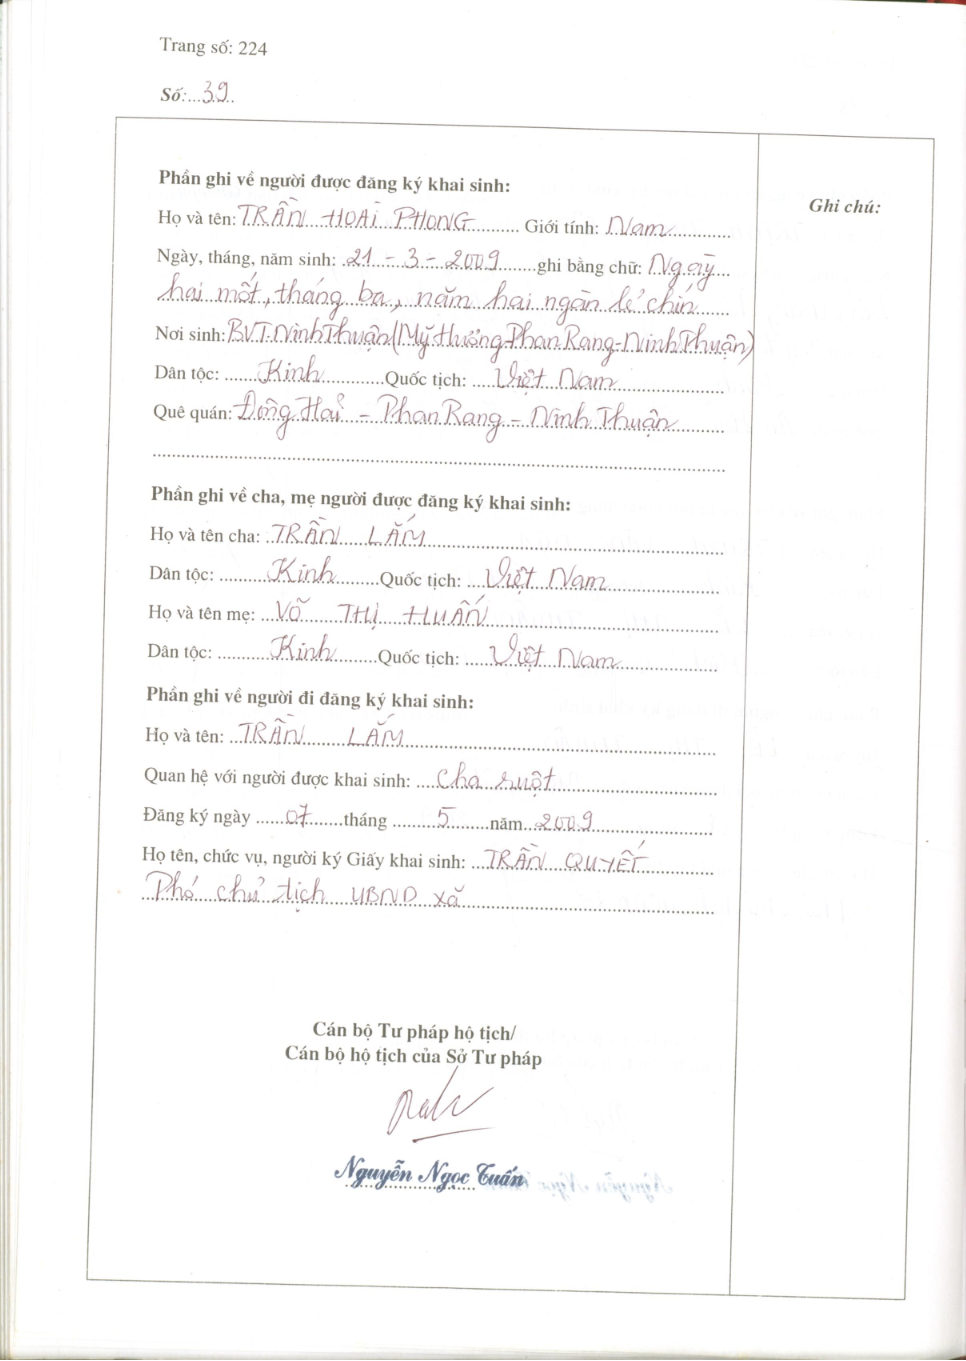 Trang số: 224
Số:...39..
Phần ghi về người được đăng ký khai sinh:
Ghi chú:
Họ và tên: TRẦN HOÀI PHONG Giới tính: Nam
Ngày, tháng, năm sinh: 21 - 3 - 2009 ghi bằng chữ: Ngày
hai mốt, tháng ba, năm hai ngàn lẻ chín
Nơi sinh: BVT. Ninh Thuận (Mỹ Hương-Phan Rang-Ninh Thuận)
Dân tộc: Kinh Quốc tịch: Việt Nam
Quê quán: Đông Hải - Phan Rang - Ninh Thuận
Phần ghi về cha, mẹ người được đăng ký khai sinh:
Họ và tên cha: TRẦN LẮM
Dân tộc: Kinh Quốc tịch: Việt Nam
Họ và tên mẹ: VÕ THỊ HUẤN
Dân tộc: Kinh Quốc tịch: Việt Nam
Phần ghi về người đi đăng ký khai sinh:
Họ và tên: TRẦN LẮM
Quan hệ với người được khai sinh: Cha ruột
Đăng ký ngày 07 tháng 5 năm 2009
Họ tên, chức vụ, người ký Giấy khai sinh: TRẦN QUYẾT
Phó chủ tịch UBND xã
Cán bộ Tư pháp hộ tịch/
Cán bộ hộ tịch của Sở Tư pháp
Nguyễn Ngọc Tuấn